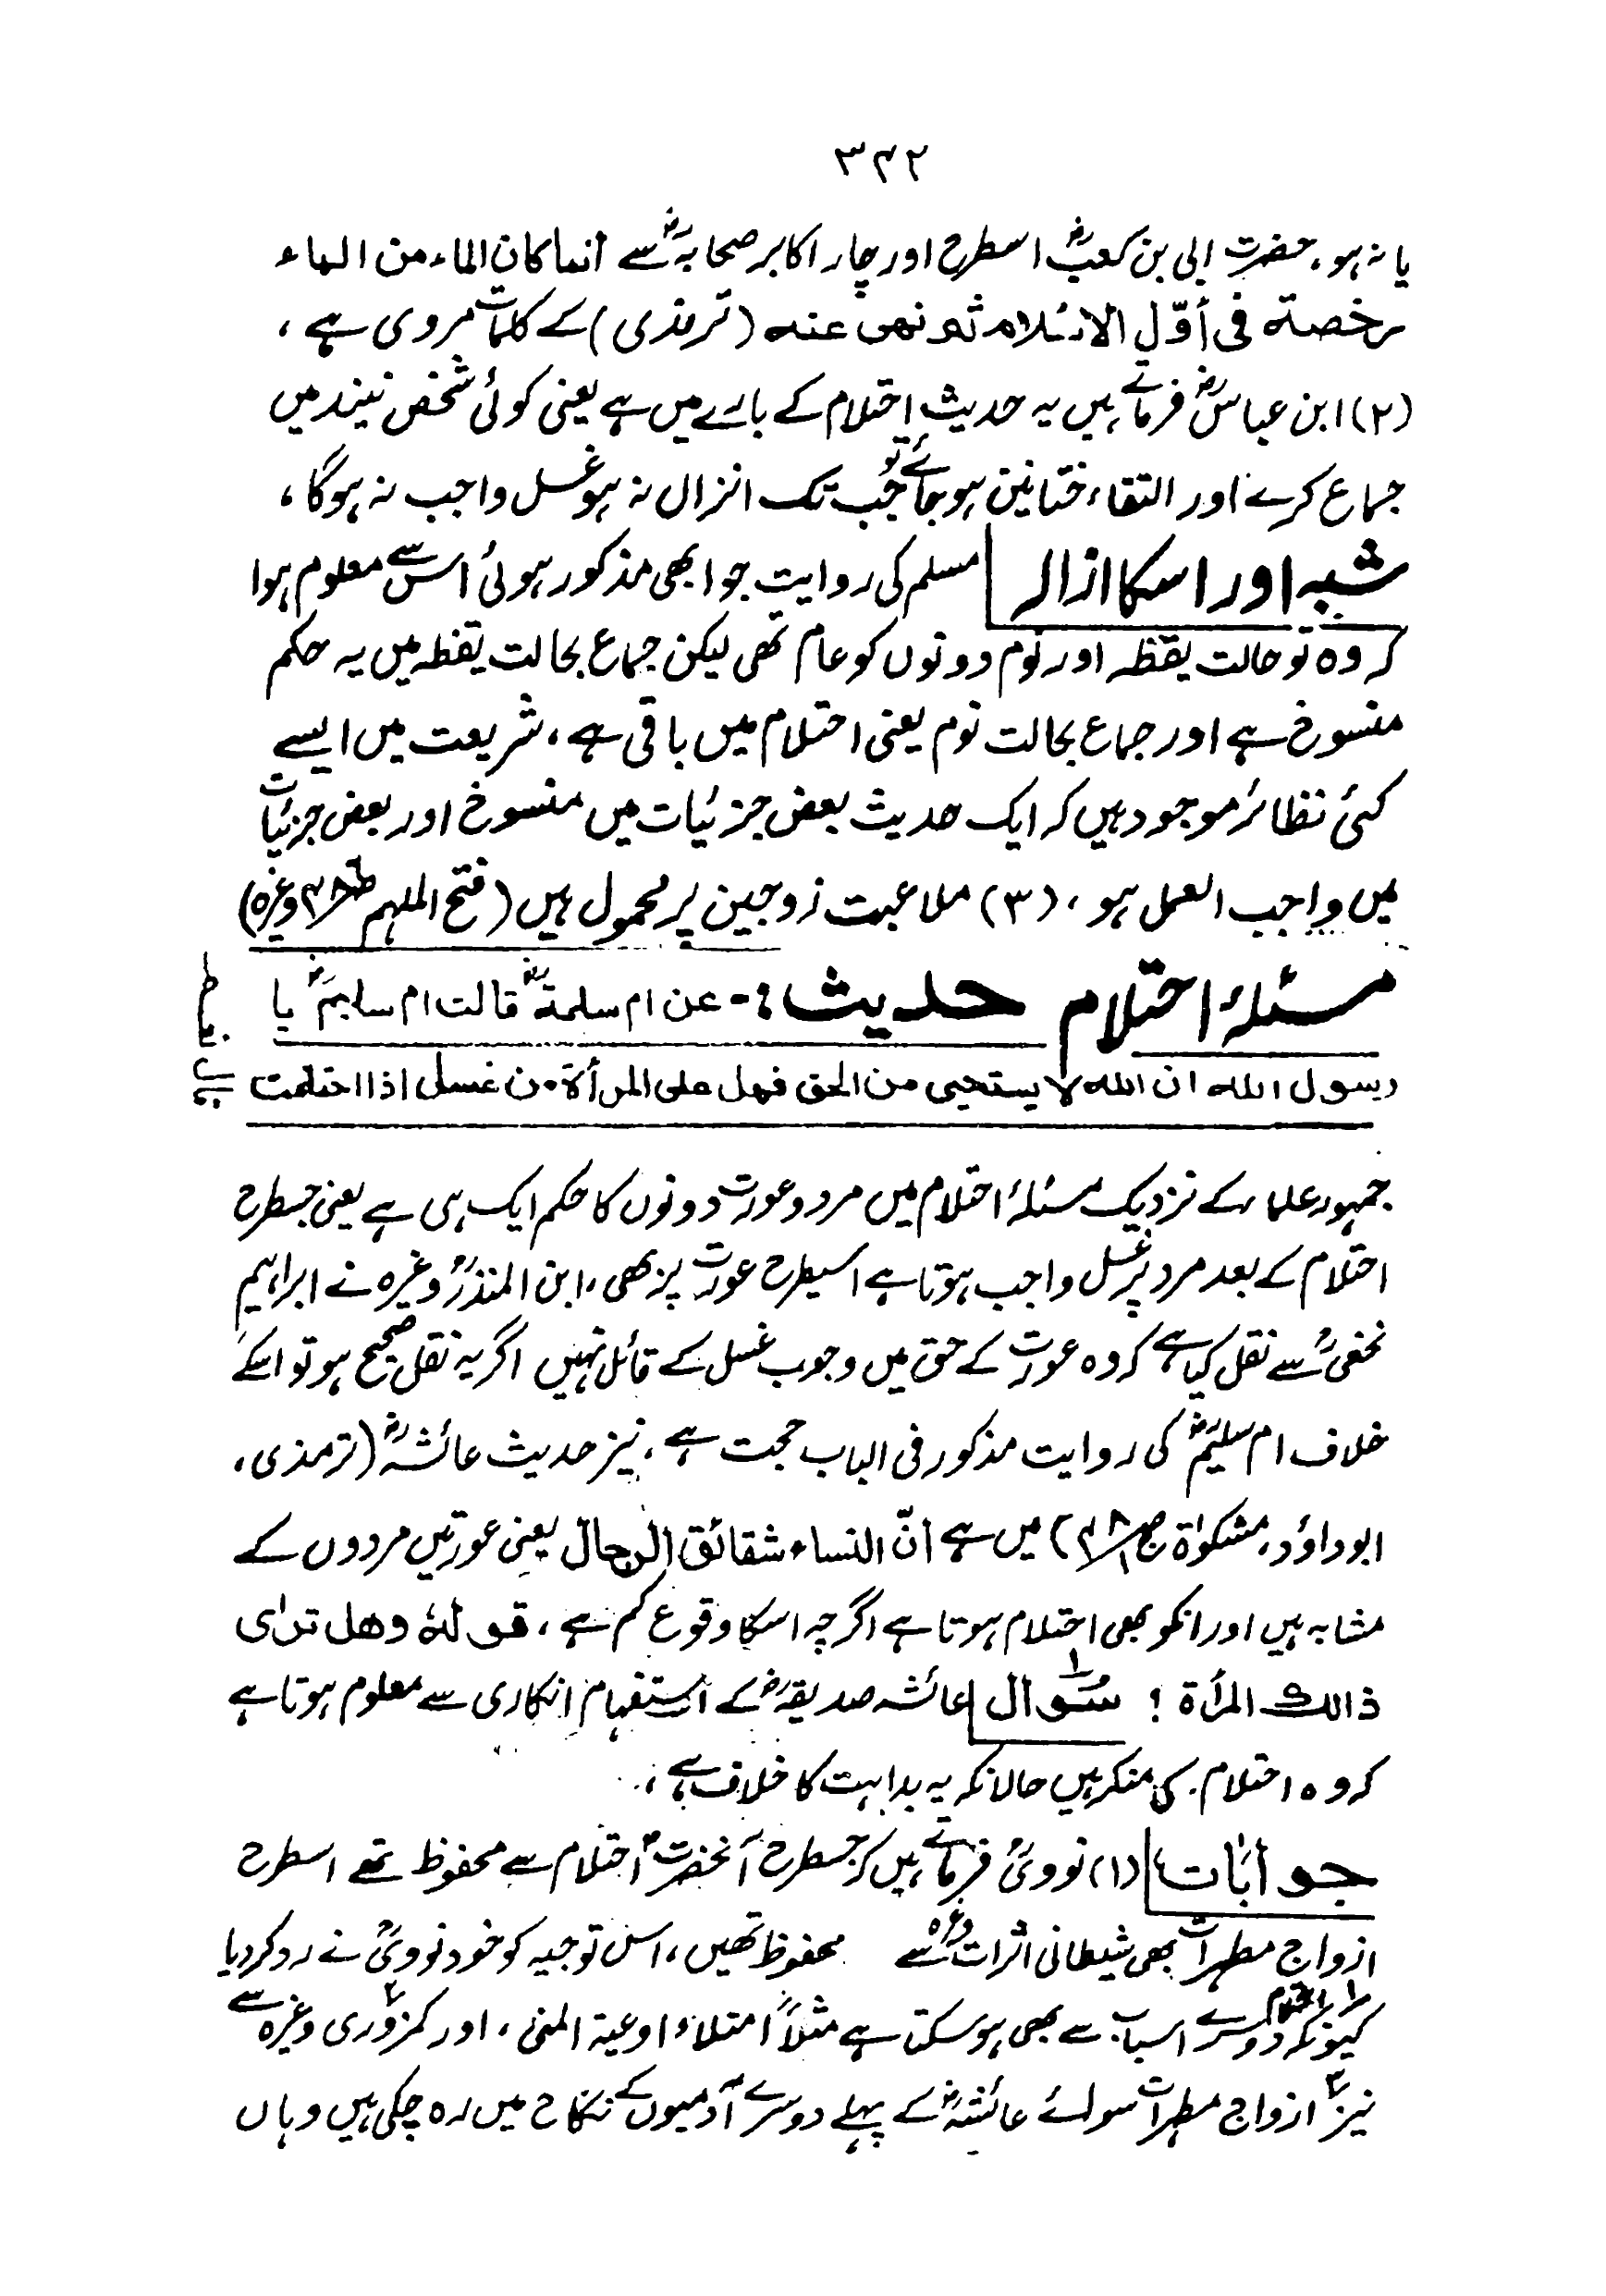 ۳۴۲
یا نہ ہو، حضرت ابی بن کعبؓ اسطرح اور چار اکابر صحابہؓ سے انما کان الماء من الماء
رخصة فی أوّل الاسلام ثم نهی عنه (ترمذی) کے کلمات مروی ہے،
(۲) ابن عباسؓ فرماتے ہیں یہ حدیث احتلام کے بارے میں ہے یعنی کوئی شخص نیند میں
جماع کرے اور التقاء ختانین ہو جائے تو جب تک انزال نہ ہو غسل واجب نہ ہوگا،
شبہ اور اسکا ازالہ مسلم کی روایت جو ابھی مذکور ہوئی اس سے معلوم ہوا
کہ وہ تو حالت یقظہ اور نوم دونوں کو عام تھی لیکن جماع بحالت یقظہ میں یہ حکم
منسوخ ہے اور جماع بحالت نوم یعنی احتلام میں باقی ہے، شریعت میں ایسے
کئی نظائر موجود ہیں کہ ایک حدیث بعض جزئیات میں منسوخ اور بعض جزئیات
میں واجب العمل ہو، (۳) ملاعبت زوجین پر محمول ہیں (فتح الملہم وغیرہ)
مسئلۂ احتلام حدیث :- عن ام سلمةؓ قالت ام سلیمؓ یا
رسول الله ان الله لا یستحیی من الحق فهل علی المرأة من غسل اذا احتلمت
جمہور علماء کے نزدیک مسئلۂ احتلام میں مرد و عورت دونوں کا حکم ایک ہی ہے یعنی جسطرح
احتلام کے بعد مرد پر غسل واجب ہوتا ہے اسیطرح عورت پر بھی، ابن المنذرؒ وغیرہ نے ابراہیم
نخعیؒ سے نقل کیا ہے کہ وہ عورت کے حق میں وجوب غسل کے قائل نہیں اگر یہ نقل صحیح ہو تو اسکے
خلاف ام سلیمؓ کی روایت مذکور فی الباب حجت ہے، نیز حدیث عائشہؓ (ترمذی،
ابوداؤد، مشکوٰۃ) میں ہے انّ النساء شقائق الرجال یعنی عورتیں مردوں کے
مشابہ ہیں اور انکو بھی احتلام ہوتا ہے اگرچہ اسکا وقوع کم ہے، قولهٗ وهل ترٰی
ذالك المرأة ؟ سوال ۱ عائشہ صدیقہؓ کے استفہام انکاری سے معلوم ہوتا ہے
کہ وہ احتلام کی منکر ہیں حالانکہ یہ بداہت کا خلاف ہے،
جوابات (۱) نوویؒ فرماتے ہیں کہ جسطرح آنحضرتؐ احتلام سے محفوظ تھے اسطرح
ازواج مطہرات بھی شیطانی اثرات وغیرہ سے محفوظ تھیں، اس توجیہ کو خود نوویؒ نے رد کر دیا
کیونکہ ۱ احتلام دوسرے اسباب سے بھی ہو سکتا ہے مثلاً امتلاء اوعیۃ المنی، اور کمزوری وغیرہ سے
نیز ازواج مطہرات سوائے عائشہؓ کے پہلے دوسرے آدمیوں کے نکاح میں رہ چکی ہیں وہاں